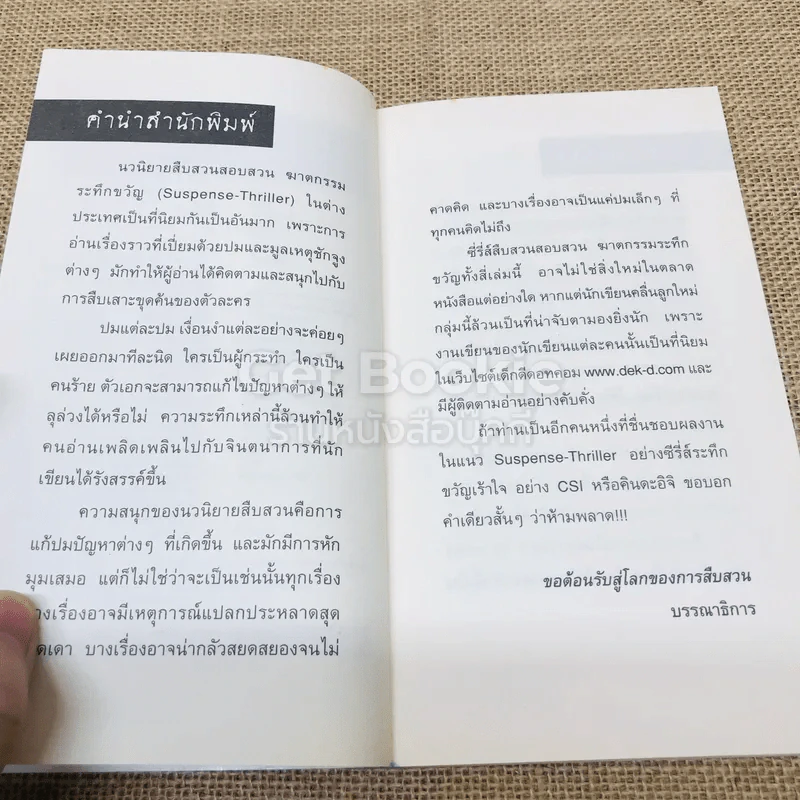 คำนำสำนักพิมพ์
นวนิยายสืบสวนสอบสวน ฆาตกรรม
ระทึกขวัญ (Suspense-Thriller) ในต่าง
ประเทศเป็นที่นิยมกันเป็นอันมาก เพราะการ
อ่านเรื่องราวที่เปี่ยมด้วยปมและมูลเหตุชักจูง
ต่างๆ มักทำให้ผู้อ่านได้คิดตามและสนุกไปกับ
การสืบเสาะขุดค้นของตัวละคร
ปมแต่ละปม เงื่อนงำแต่ละอย่างจะค่อยๆ
เผยออกมาทีละนิด ใครเป็นผู้กระทำ ใครเป็น
คนร้าย ตัวเอกจะสามารถแก้ไขปัญหาต่างๆ ให้
ลุล่วงได้หรือไม่ ความระทึกเหล่านี้ล้วนทำให้
คนอ่านเพลิดเพลินไปกับจินตนาการที่นัก
เขียนได้รังสรรค์ขึ้น
ความสนุกของนวนิยายสืบสวนคือการ
แก้ปมปัญหาต่างๆ ที่เกิดขึ้น และมักมีการหัก
มุมเสมอ แต่ก็ไม่ใช่ว่าจะเป็นเช่นนั้นทุกเรื่อง
บางเรื่องอาจมีเหตุการณ์แปลกประหลาดสุด
บางเรื่องอาจน่ากลัวสยดสยองจนไม่
คาดคิด และบางเรื่องอาจเป็นแค่ปมเล็กๆ ที่
ทุกคนคิดไม่ถึง
ซีรี่ส์สืบสวนสอบสวน ฆาตกรรมระทึก
ขวัญทั้งสี่เล่มนี้ อาจไม่ใช่สิ่งใหม่ในตลาด
หนังสือแต่อย่างใด หากแต่นักเขียนคลื่นลูกใหม่
กลุ่มนี้ล้วนเป็นที่น่าจับตามองยิ่งนัก เพราะ
งานเขียนของนักเขียนแต่ละคนนั้นเป็นที่นิยม
ในเว็บไซต์เด็กดีดอทคอม www.dek-d.com และ
มีผู้ติดตามอ่านอย่างคับคั่ง
ถ้าท่านเป็นอีกคนหนึ่งที่ชื่นชอบผลงาน
ในแนว Suspense-Thriller อย่างซีรี่ส์ระทึก
ขวัญเร้าใจ อย่าง CSI หรือคินดะอิจิ ขอบอก
คำเดียวสั้นๆ ว่าห้ามพลาด!!!
ขอต้อนรับสู่โลกของการสืบสวน
บรรณาธิการ